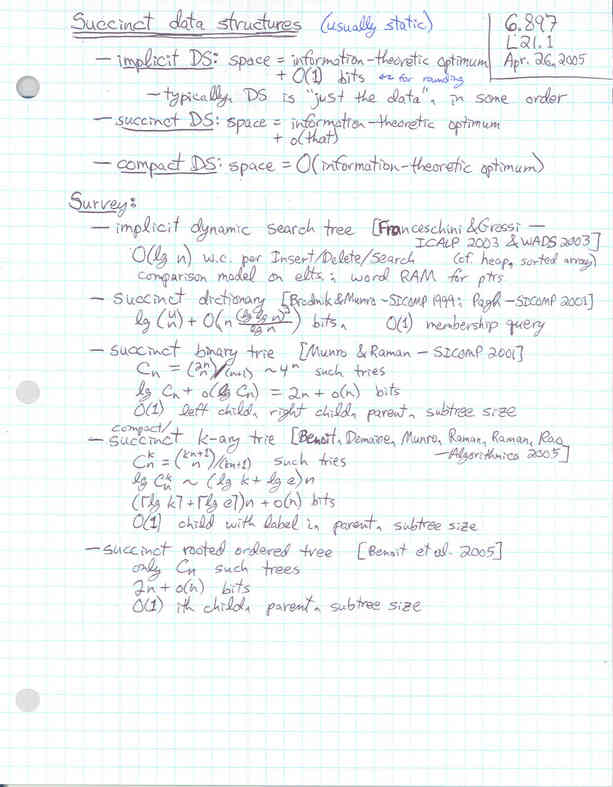 Succinct data structures (usually static)
6.897
L21.1
Apr. 26, 2005
— implicit DS: space = information-theoretic optimum
+ O(1) bits ← for rounding
— typically, DS is "just the data", in some order
— succinct DS: space = information-theoretic optimum
+ o(that)
— compact DS: space = O(information-theoretic optimum)
Survey:
— implicit dynamic search tree [Franceschini & Grossi —
ICALP 2003 & WADS 2003]
O(lg n) w.c. per Insert/Delete/Search (cf. heap, sorted array)
comparison model on elts.; word RAM for ptrs
— succinct dictionary [Brodnik & Munro - SICOMP 1999; Pagh - SICOMP 2001]
lg (u n) + O(n (lg lg n)²/lg n) bits, O(1) membership query
— succinct binary trie [Munro & Raman - SICOMP 2001]
Cn = (2n n)/(n+1) ~ 4ⁿ such tries
lg Cn + o(lg Cn) = 2n + o(n) bits
O(1) left child, right child, parent, subtree size
compact/
— succinct k-ary trie [Benoit, Demaine, Munro, Raman, Raman, Rao
— Algorithmica 2005]
Cnᵏ = (kn+1 n)/(kn+1) such tries
lg Cnᵏ ~ (lg k + lg e)n
(⌈lg k⌉ + ⌈lg e⌉)n + o(n) bits
O(1) child with label i, parent, subtree size
— succinct rooted ordered tree [Benoit et al. 2005]
only Cn such trees
2n + o(n) bits
O(1) ith child, parent, subtree size